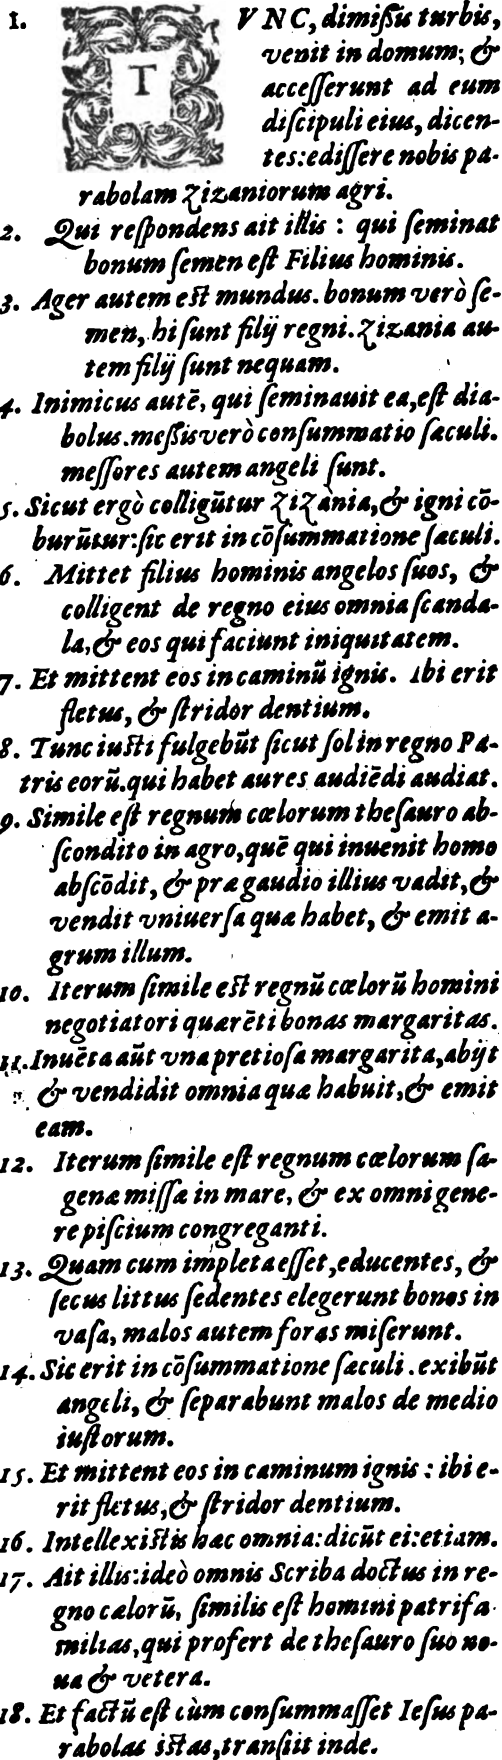 1. TVNC, dimiſſis turbis,
venit in domum; &
acceſſerunt ad eum
diſcipuli eius, dicen-
tes:ediſſere nobis pa-
rabolam zizaniorum agri.
2. Qui reſpondens ait illis : qui ſeminat
bonum ſemen eſt Filius hominis.
3. Ager autem eſt mundus. bonum verò ſe-
men, hi ſunt filij regni. Zizania au-
tem filij ſunt nequam.
4. Inimicus autē, qui ſeminauit ea,eſt dia-
bolus.meſſis verò conſummatio ſæculi.
meſſores autem angeli ſunt.
5. Sicut ergò colligūtur zizània,& igni cō-
burūtur:ſic erit in cōſummatione ſæculi.
6. Mittet filius hominis angelos ſuos, &
colligent de regno eius omnia ſcanda-
la,& eos qui faciunt iniquitatem.
7. Et mittent eos in caminū ignis. Ibi erit
fletus, & ſtridor dentium.
8. Tunc iuſti fulgebūt ſicut ſol in regno Pa-
tris eorū.qui habet aures audiēdi audiat.
9. Simile eſt regnum cœlorum theſauro ab-
ſcondito in agro,quē qui inuenit homo
abſcōdit, & præ gaudio illius vadit,&
vendit vniuerſa quæ habet, & emit a-
grum illum.
10. Iterum ſimile eſt regnū cœlorū homini
negotiatori quærēti bonas margaritas.
11. Inuēta aūt vna pretioſa margarita,abijt
& vendidit omnia quæ habuit,& emit
eam.
12. Iterum ſimile eſt regnum cœlorum ſa-
genæ miſſæ in mare, & ex omni gene-
re piſcium congreganti.
13. Quam cum impleta eſſet,educentes, &
ſecus littus ſedentes elegerunt bonos in
vaſa, malos autem foras miſerunt.
14. Sic erit in cōſummatione ſæculi.exibūt
angeli, & ſeparabunt malos de medio
iuſtorum.
15. Et mittent eos in caminum ignis : ibi e-
rit fletus,& ſtridor dentium.
16. Intellexiſtis hæc omnia:dicūt ei:etiam.
17. Ait illis:ideò omnis Scriba doctus in re-
gno cælorū, ſimilis eſt homini patrifa
milias,qui profert de theſauro ſuo no-
ua & vetera.
18. Et factū eſt cùm conſummaſſet Ieſus pa-
rabolas iſtas,tranſiit inde.